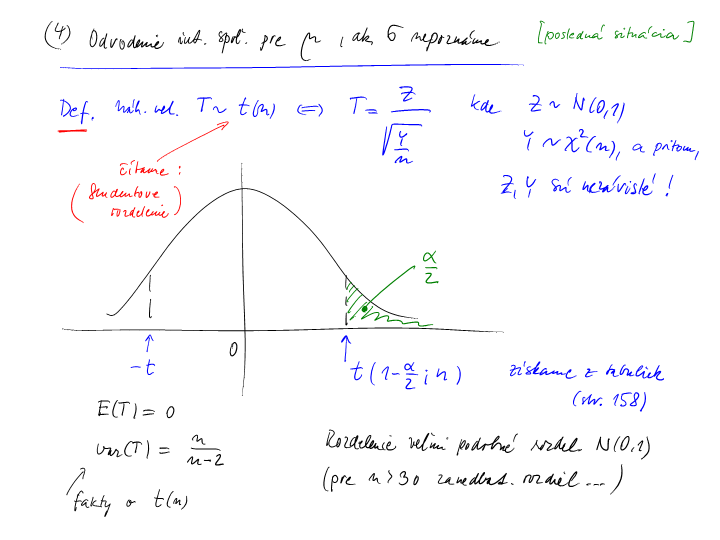 (4) Odvodenie int. spoľ. pre μ, ak σ nepoznáme [posledná situácia]
Def. náh. vel. T ~ t(n) ⇔ T = Z / √(Y/n) kde Z ~ N(0,1)
Y ~ χ²(n), a pritom,
Z, Y sú nezávislé!
čítame:
(Studentove
rozdelenie)
α/2
-t
0
t(1-α/2; n)
získame z tabuliek
(str. 158)
E(T) = 0
var(T) = n/(n-2)
fakty o t(n)
Rozdelenie veľmi podobné rozdel. N(0,1)
(pre n>30 zanedbat. rozdiel...)